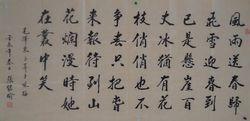 風雨送春歸
飛雪迎春到
已是懸崖百
丈冰猶有花
枝俏俏也不
爭春只把春
来報待到山
花爛漫時她
在叢中笑
毛澤東卜算子詠梅